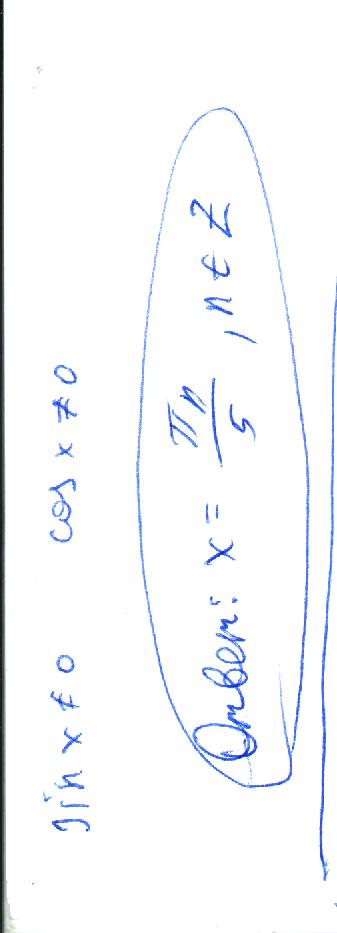 sin x ≠ 0 cos x ≠ 0
Ответ: x = πn/5 , n ∈ Z